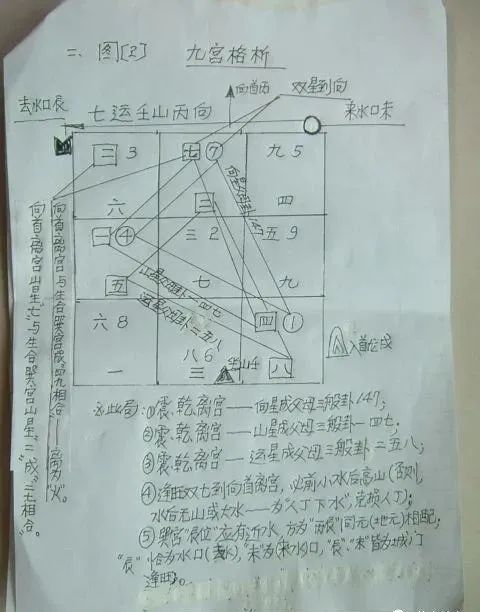 二、图[2] 九宫格析
向首丙 双星到向
去水口辰 七运壬山丙向 来水口未
三 3 七 ⑦ 九 5
六 三 四
一 ④ 三 2 五 9
五 七 九
六 8 八 6 四 ①
一 三 坐山壬 八
向星父母卦147
山星父母卦一四七
运星父母卦二五八
入首
⼄此局:①震、乾、离宫——向星成父母三般卦147;
②震、乾离宫——山星成父母三般卦一四七;
③震、乾离宫——运星成父母三般卦二五八;
④逢旺双七到向首离宫,必前小水后高山(否则,
水后无山或大水——为"人丁下水",党损人丁);
⑤巽宫"辰位"应有近水,方为"丙辰"同元(地元)相配,
"辰"恰为水口(去水),"未"为来水口,"辰""未"皆为城门
逢旺。
向首离宫与生合巽宫成"四九相合"——离为"火"。
向首离宫山星"七"与生合巽宫山星"二"成"二七相合"。